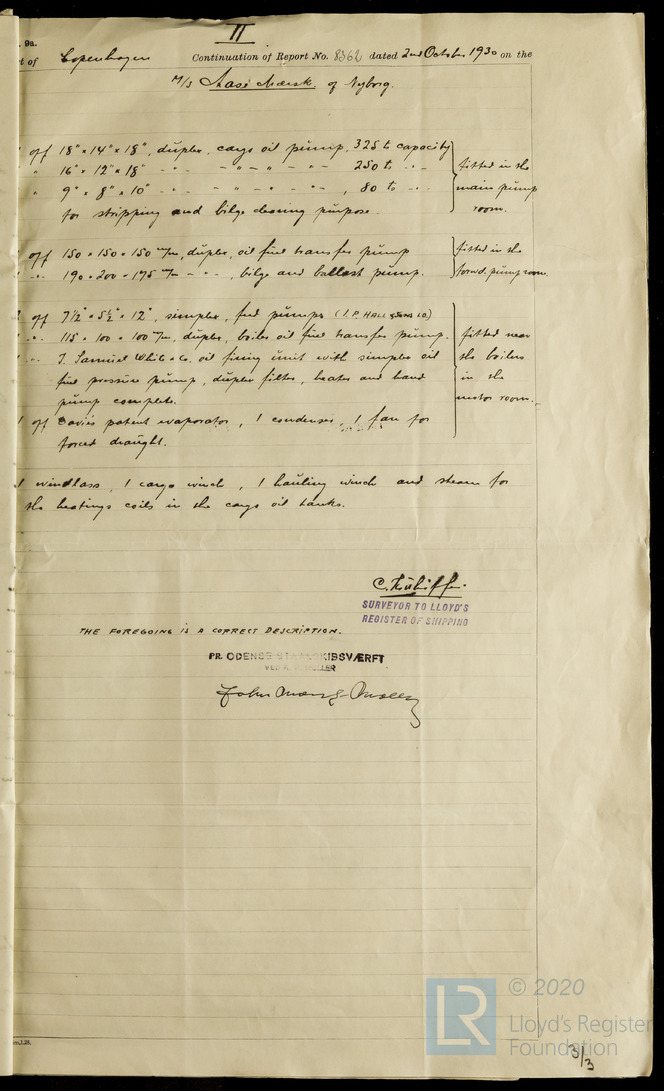 II
. 9a.
t of Copenhagen Continuation of Report No. 8362 dated 2nd October 1930 on the
M/S Aase Mærsk. of Nyborg.
off 18" × 14" × 18", duplex, cargo oil pump, 325 t capacity
" 16" × 12" × 18" - - - " - " - - " - 250 t. - - fitted in the
" 9" × 8" × 10" - - - " - " - " - , 80 t - - - main pump
for stripping and bilge cleaning purpose. room.
off 150 × 150 × 150 m/m, duplex, oil fuel transfer pump fitted in the
" 190 × 200 × 175 m/m - " - , bilge and ballast pump. forwd. pump room.
off 7½" × 5½" × 12", simplex, feed pumps (J.P. HALL & SONS LD.)
1 " . 115 × 100 × 100 m/m, duplex, boiler oil fuel transfer pump. fitted near
1 " . J. Samuel White & Co. oil firing unit with simplex oil the boilers
fuel pressure pump, duplex filter, heater and hand in the
pump complete. motor room.
1 off Davies patent evaporator, 1 condenser, 1 fan for
forced draught.
1 windlass, 1 cargo winch, 1 hauling winch and steam for
the heatings coils in the cargo oil tanks.
SURVEYOR TO LLOYD'S
REGISTER OF SHIPPING
THE FOREGOING IS A CORRECT DESCRIPTION.
PR. ODENSE STAALSKIBSVÆRFT
VED A. P. MØLLER
© 2020
LR
Lloyd's Register
Foundation
3/3